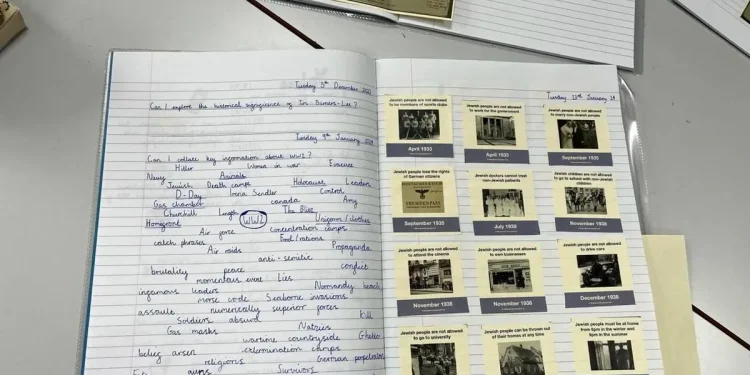 Tuesday 5th December
Can I explore the historical significance of Tim Berners-Lee?
Tuesday 9th January
Can I collate key information about WW2?
Hitler Women in war Evacuee
Navy Animals
Jewish Death camps Holocaust Leaders
D-Day Irena Sendler Control
Gas chamber canada Army
Churchill Length The Blitz
Homefront WW2 Uniform/clothes
Air force Concentration camps
catch phrases Food/rations Propaganda
Air raids
anti-semitic
brutality peace conflict
momentous event Lies
infamous leaders Normandy beach
morse code Seaborne invasions
assault numerically superior forces
Soldiers absurd kill
Gas masks Natzies
wartime countryside Ghetto
extermination camps
religious German
guns Survivors
Tuesday
January
Jewish people are not allowed
to be members of sports clubs
April 1933
Jewish people are not allowed
to work for the government
April 1933
Jewish people are not allowed
to marry non-Jewish people
September 1935
Jewish people lose the rights
of German citizens
September 1935
Jewish doctors cannot treat
non-Jewish patients
July 1938
Jewish children are not allowed
to go to school with non-Jewish
children
November 1938
Jewish people are not allowed
to attend the cinema
November 1938
Jewish people are not allowed
to own businesses
November 1938
Jewish people are not allowed
to drive cars
December 1938
Jewish people are not allowed
to go to university
Jewish people can be thrown out
of their homes at any time
Jewish people must be at home
from 8pm in the winter and
9pm in the summer